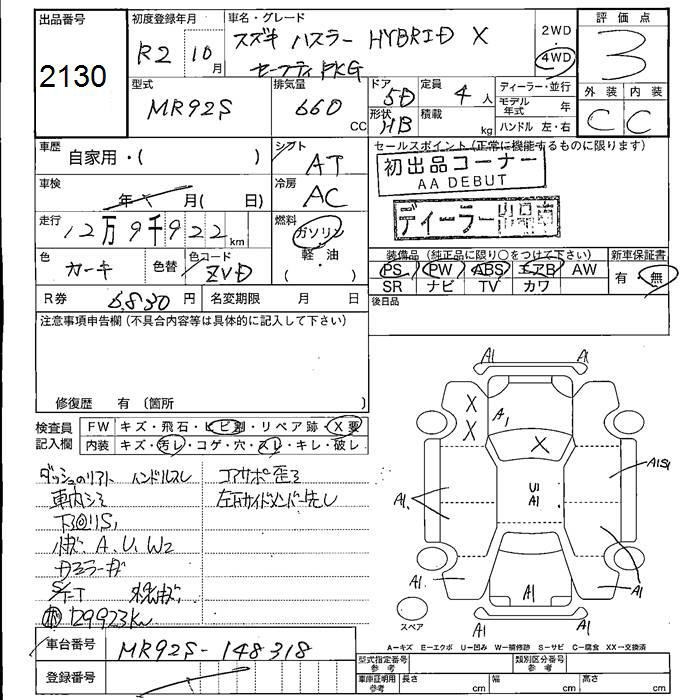 出品番号
2130
初度登録年月
R2 10月
車名・グレード
スズキ ハスラー HYBRID X
セーフティPKG
2WD
4WD
評価点
3
外装 内装
C C
型式
MR92S
排気量
660 CC
ドア
5D
形状
HB
定員
4人
積載
kg
ディーラー・並行
モデル年式 年
ハンドル 左・右
車歴
自家用・( )
シフト
AT
セールスポイント(正常に機能するものに限ります)
初出品コーナー
AA DEBUT
ディーラー
車検
年 月( 日)
冷房
AC
走行
12万9千922km
燃料
ガソリン
軽・油
( )
色
カーキ
色替
色コード
ZVD
装備品(純正品に限り○をつけて下さい)
新車保証書
PS PW ABS エアB AW
SR ナビ TV カワ
有・無
R券 6,830円
名変期限 月 日
後日品
注意事項申告欄(不具合内容等は具体的に記入して下さい)
修復歴 有(箇所 )
検査員記入欄
FW キズ・飛石・ヒビ割・リペア跡・X要
内装 キズ・汚レ・コゲ・穴・スレ・キレ・破レ
ハンドルスレ
コアサポ歪み
車内シミ
A、U、W2
129923km
車台番号
MR92S-148318
登録番号
A1 A1
X
X
A1
X
A1S1
U1
A1
A1.
A1. A1
A1
A1 A1
スペア
A-キズ E-エクボ U-凹み W-補修跡 S-サビ C-腐食 XX-交換済
型式指定番号
参考
類別区分番号
参考
車庫証明用
参考
長さ cm
幅 cm
高さ cm